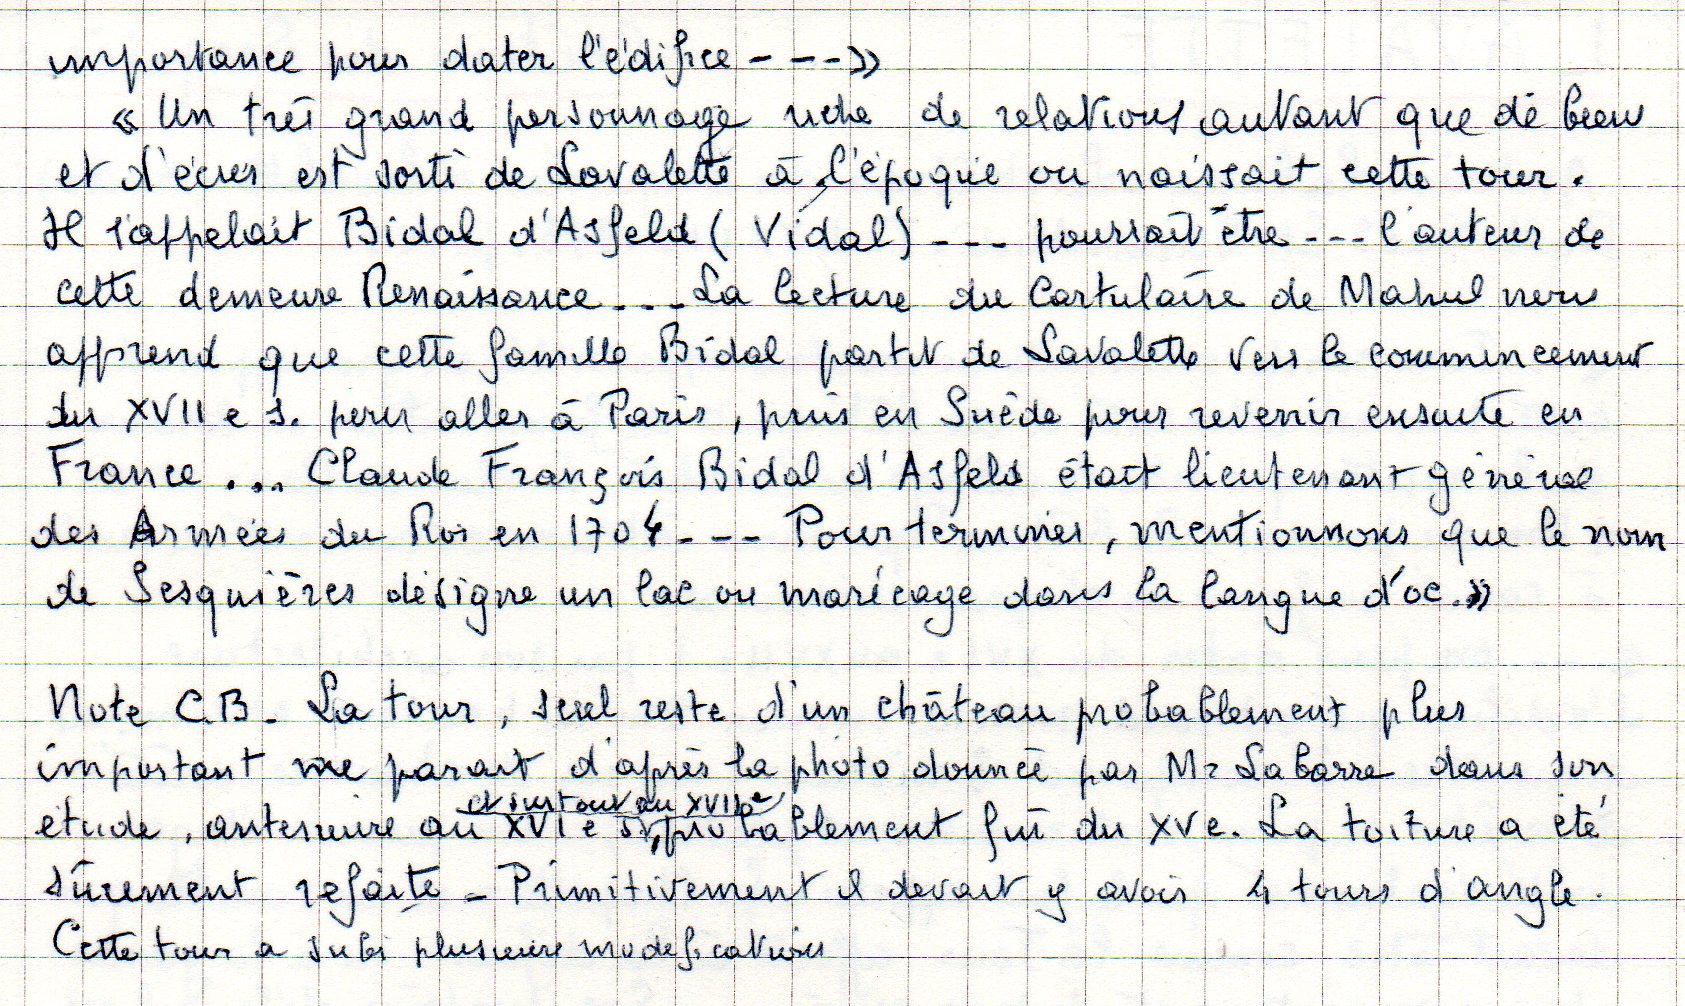 importance pour dater l'édifice - - - »
« Un très grand personnage riche de relations autant que de biens
et d'écus est sorti de Lavalette à l'époque ou naissait cette tour.
Il s'appelait Bidal d'Asfeld ( Vidal) - - - pourrait être - - - l'auteur de
cette demeure Renaissance - - - La lecture du Cartulaire de Mahul nous
apprend que cette famille Bidal partit de Lavalette vers le commencement
du XVII e s. pour aller à Paris, puis en Suède pour revenir ensuite en
France ... Claude François Bidal d'Asfeld était lieutenant général
des Armées du Roi en 1704 - - - Pour terminer, mentionnons que le nom
de Sesquières désigne un lac ou marécage dans la langue d'oc. »
Note C.B. La tour, seul reste d'un château probablement plus
important me parait d'après la photo donnée par Mr Labarre dans son
et surtout au XVII e
étude, anterieure au XVI e s, probablement fin du XV e. La toiture a été
sûrement refaite - Primitivement il devait y avoir 4 tours d'angle.
Cette tour a subi plusieurs modifications